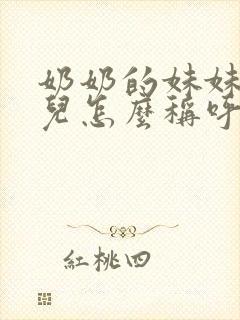 奶奶的妹妹
兒怎麼稱呼
紅桃四